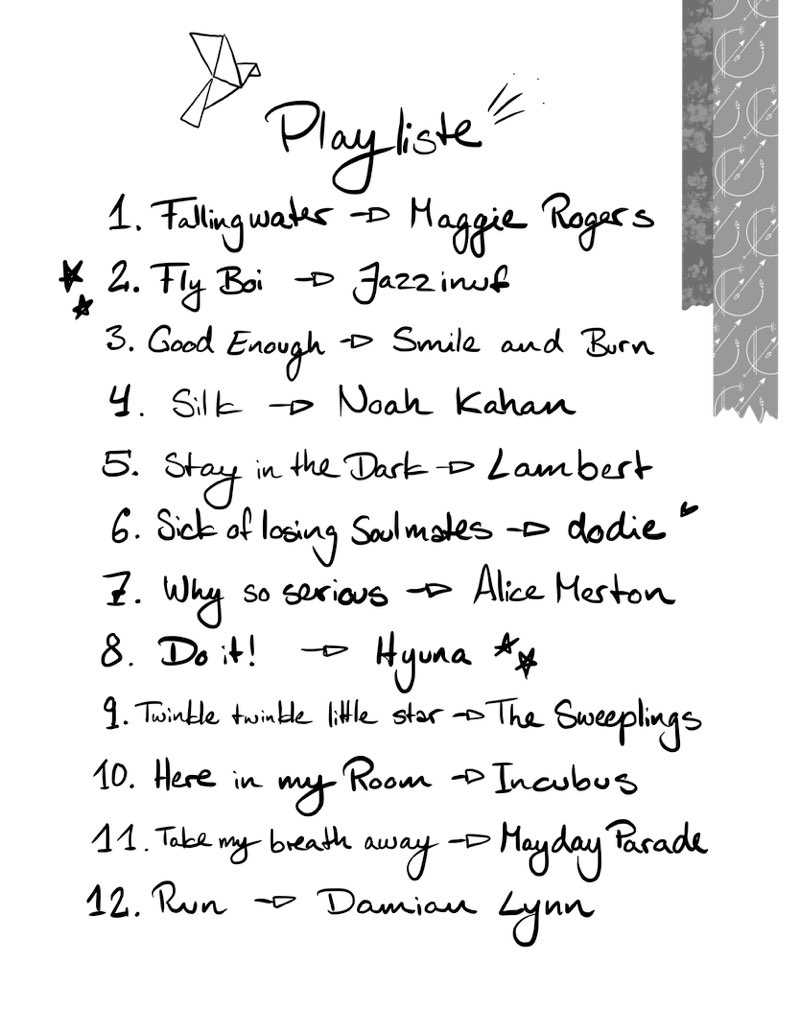 Playliste
1. Fallingwater → Maggie Rogers
2. Fly Boi → Jazzinuf
3. Good Enough → Smile and Burn
4. Silk → Noah Kahan
5. Stay in the Dark → Lambert
6. Sick of losing Soulmates → dodie
7. Why so serious → Alice Merton
8. Do it! → Hyuna
9. Twinkle twinkle little star → The Sweeplings
10. Here in my Room → Incubus
11. Take my breath away → Mayday Parade
12. Run → Damian Lynn